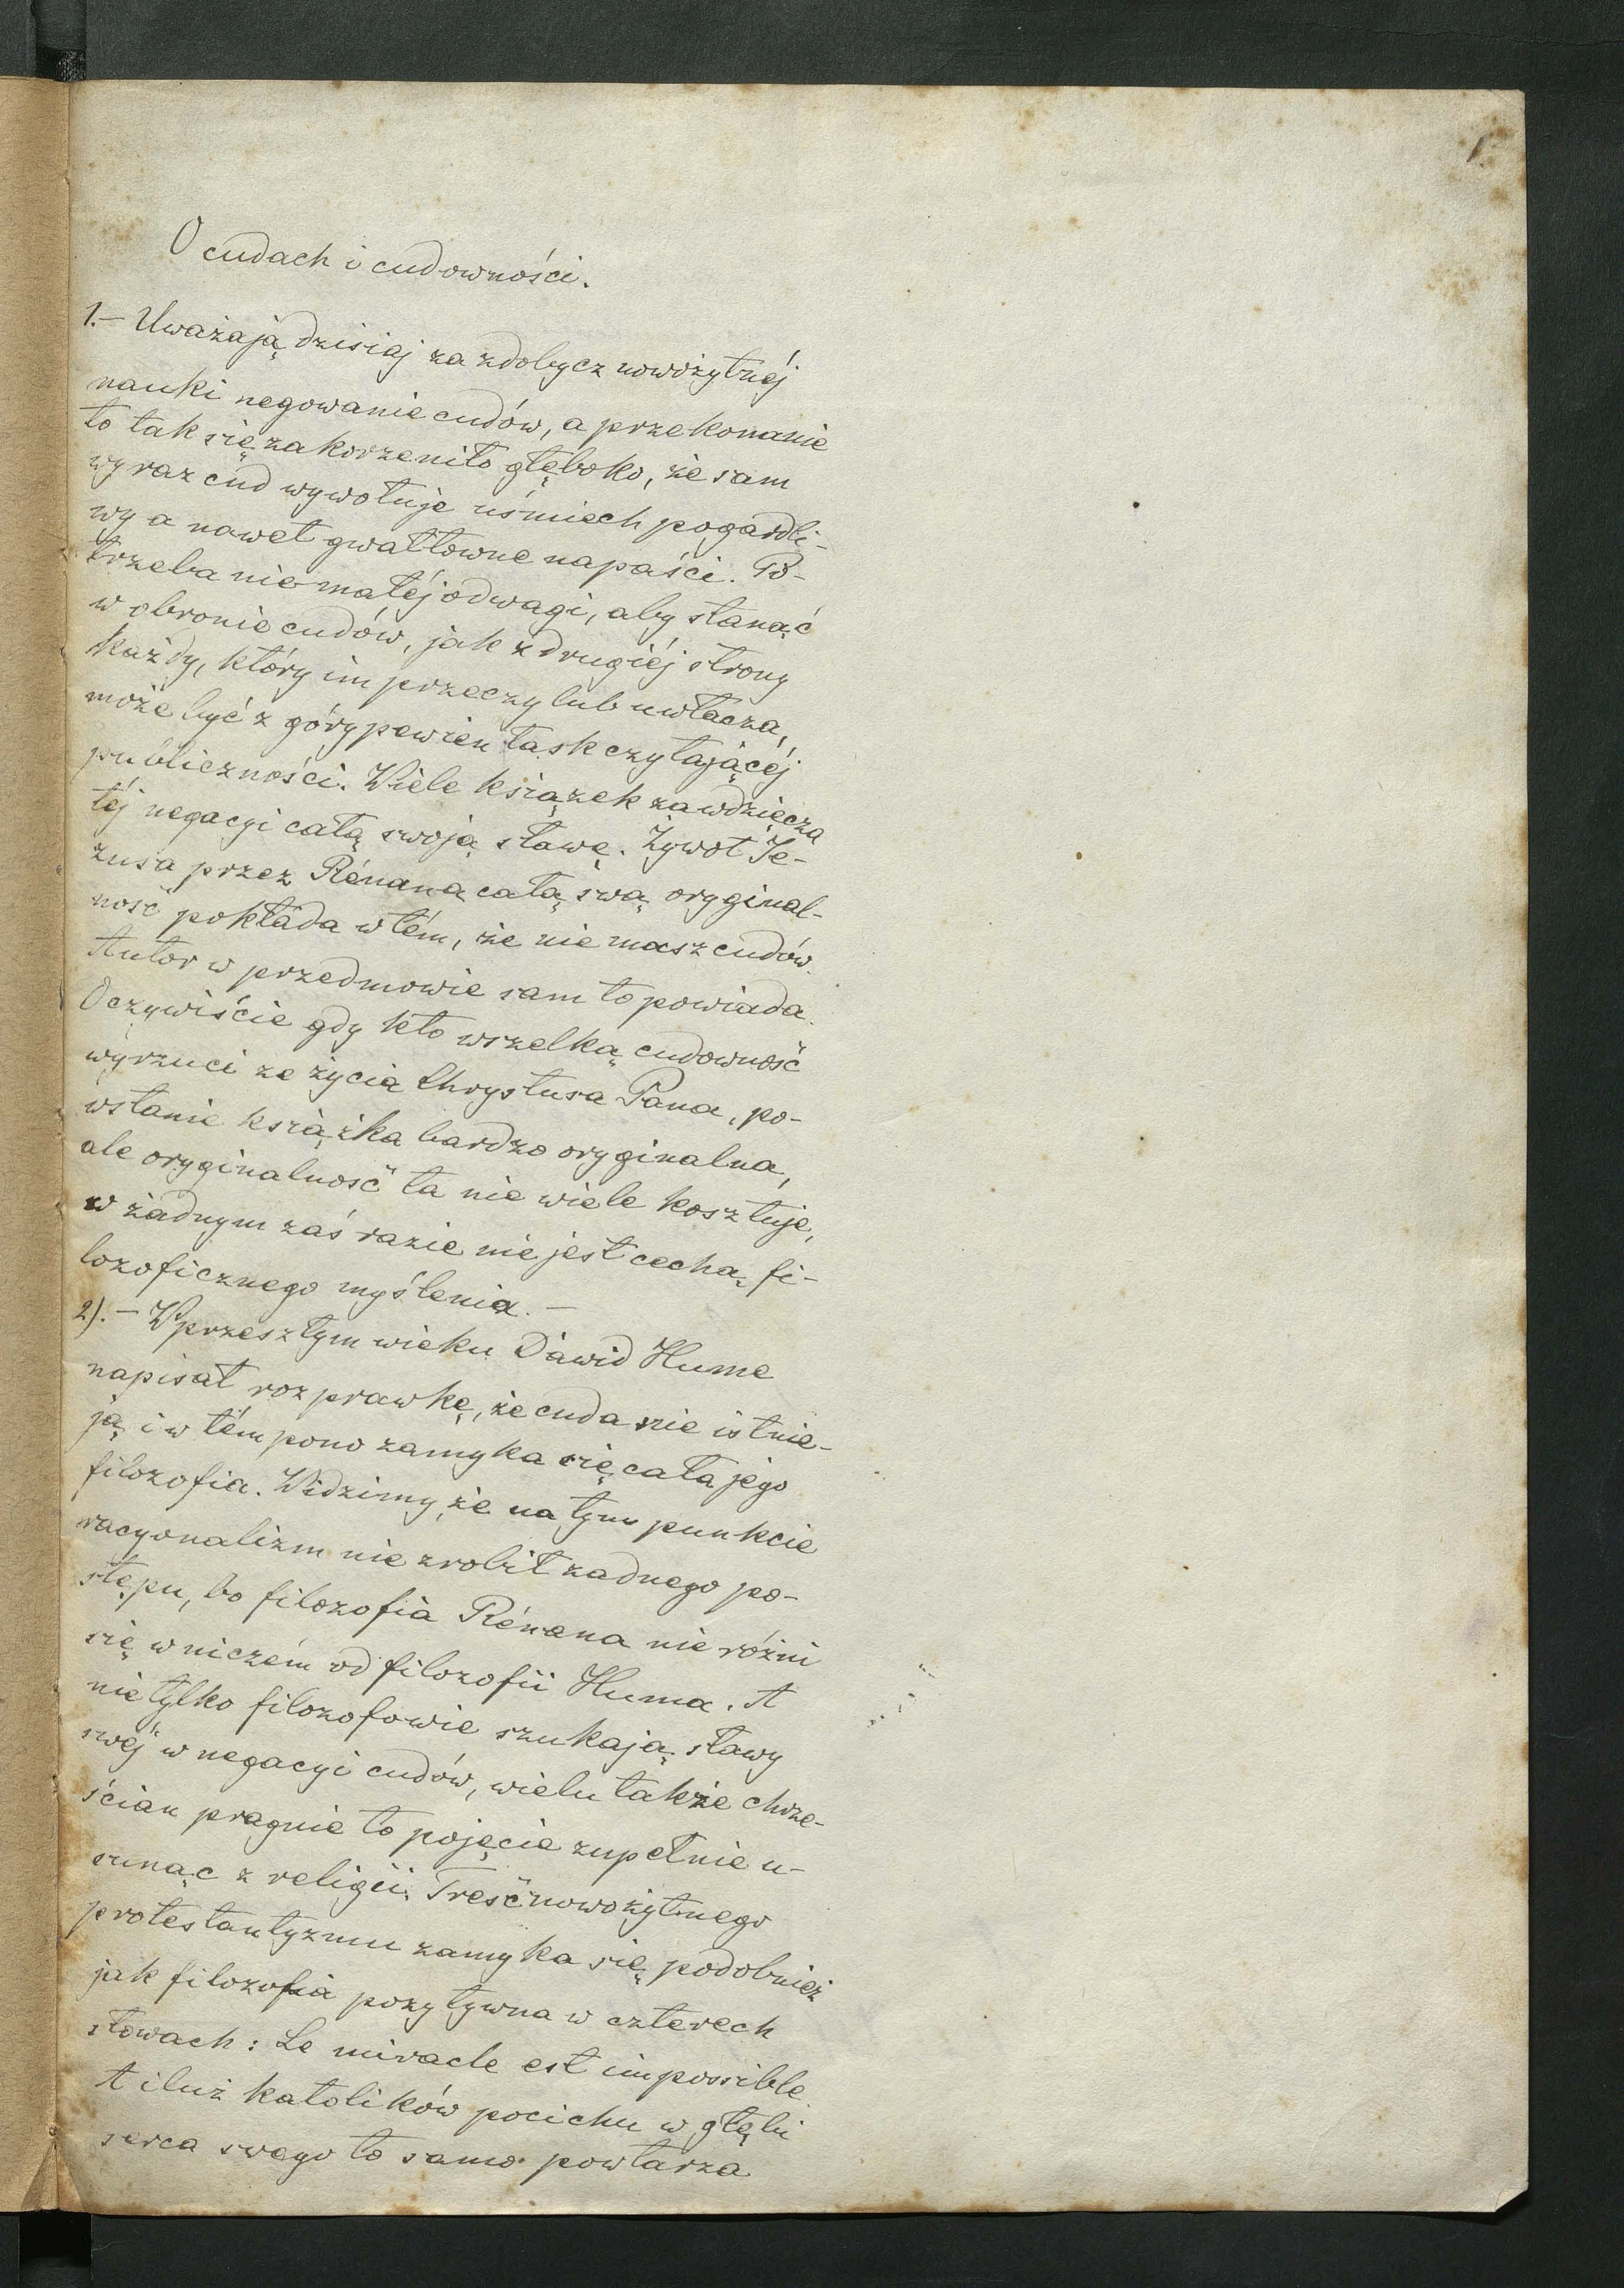 1
O cudach i cudowności.
1.– Uważają dzisiaj za zdobycz nowożytnéj
nauki negowanie cudów, a przekonanie
to tak się zakorzeniło głęboko, że sam
wyraz cud wywołuje uśmiech pogardli-
wy a nawet gwałtowne napaści. Po-
trzeba niemałéj odwagi, aby stanąć
w obronie cudów, jak z drugiéj strony
każdy, który im przeczy lub uwłacza,
może być z góry pewien łask czytającéj
publiczności. Wiele książek zawdzięcza
téj negacyi całą swoją sławę. Żywot Je-
zusa przez Rénana całą swą orygginal-
ność pokłada w tém, że nie masz cudów.
Autor w przedmowie sam to powiada.
Oczywiście gdy kto wszelką cudowność
wyrzuci ze życia Chrystusa Pana, po-
wstanie książka bardzo oryginalna,
ale oryginalność ta nie wiele kosztuje,
w żadnym zaś razie nie jest cechą fi-
lozoficznego myślenia. –
2). – W przeszłym wieku Dawid Hume
napisał rozprawkę, że cuda nie istnie-
ją i w tém pono zamyka się cała jego
filozofia. Widzimy, że na tym punkcie
racyonalizm nie zrobił żadnego po-
stępu, bo filozofia Rénana nie różni
się w niczém od filozofii Huma. A
nie tylko filozofowie szukają sławy
swéj w negacyi cudów, wielu także chrze-
ścian pragnie to pojęcie zupełnie u-
sunąć z religii. Treść nowożytnego
protestantyzmu zamyka się podobnież
jak filozofia pozytywna w czterech
słowach: Le miracle est impossible.
A iluż katolików pocichu w głębi
serca swego to samo powtarza